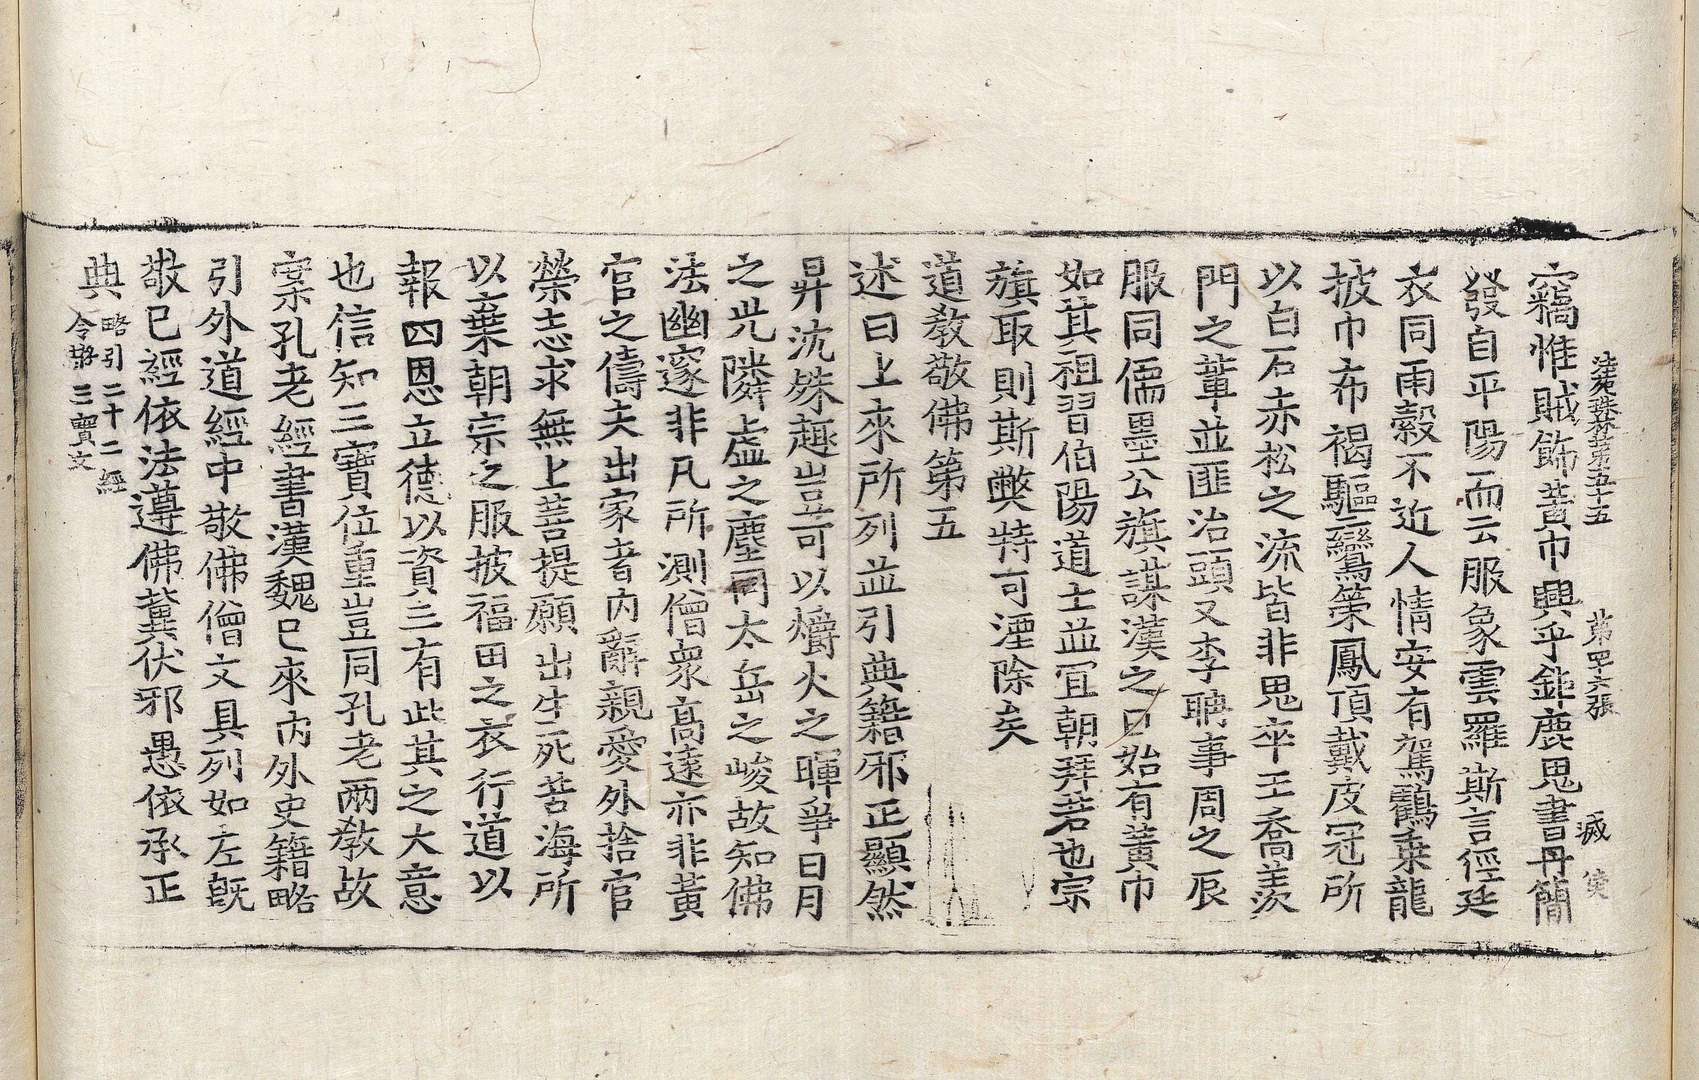 法苑珠林卷第五十五 第四十六張 㓕 侠
竊惟賊飾黃巾興乎鉅鹿思書丹簡
發自平陽而云服象雲羅斯言徑廷
衣同雨縠不近人情安有駕鶴乗龍
披巾布褐驅鸞策鳳頂戴皮冠所
以白石赤松之流皆非思卒王喬羨
門之輩並匪治頭又李聃事周之辰
服同儒墨公旗謀漢之日始有黃巾
如其祖習伯陽道士並冝朝拜若也宗
旗取則斯弊特可湮除矣
道教敬佛第五
述曰上來所列並引典籍邪正顯然
昇沈殊趣豈可以爝火之暉爭日月
之光隣虛之塵同太岳之峻故知佛
法幽邃非凡所測僧衆高遠亦非黃
官之儔夫出家者內辭親愛外捨官
榮志求無上菩提願出生死苦海所
以棄朝宗之服披福田之衣行道以
報四恩立德以資三有此其之大意
也信知三寶位重豈同孔老兩教故
案孔老經書漢魏已來內外史籍略
引外道經中敬佛僧文具列如左旣
敬已經依法遵佛兾伏邪愚依承正
典 略引二十二經令敬三寶文